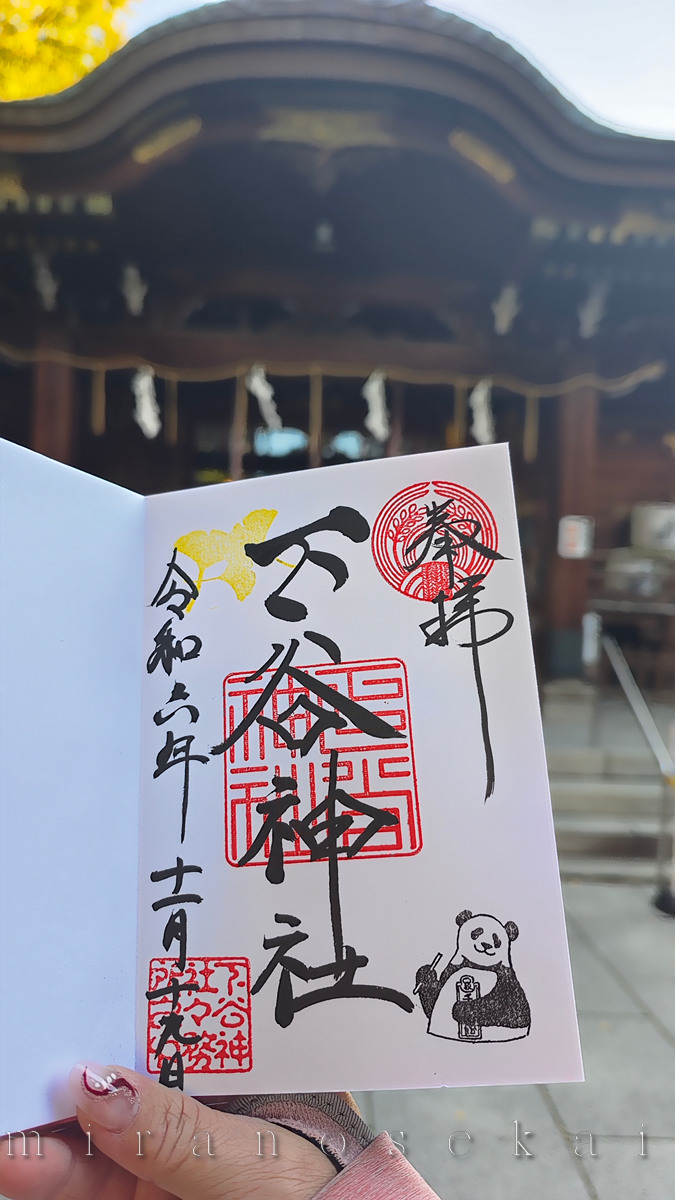 奉拝
下谷神社
令和六年十一月十九日
下谷神
社々務
所之印
miranosekai